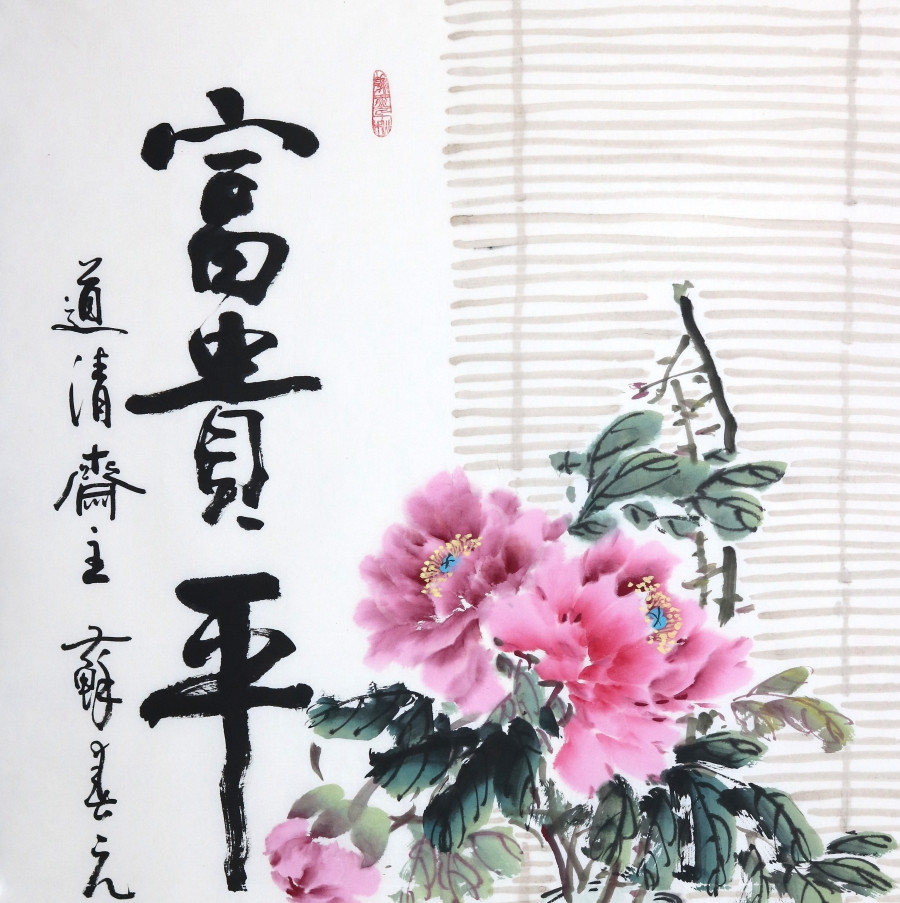 富貴平
道清齋主 蘇春元